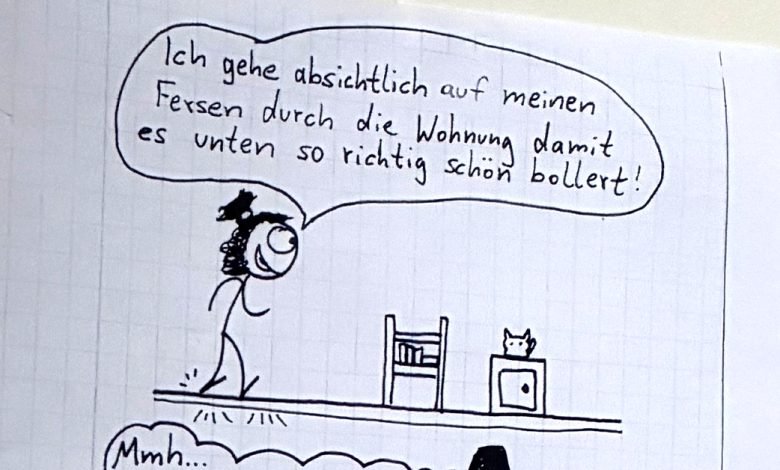 Ich gehe absichtlich auf meinen
Fersen durch die Wohnung damit
es unten so richtig schön bollert!
Mmh...